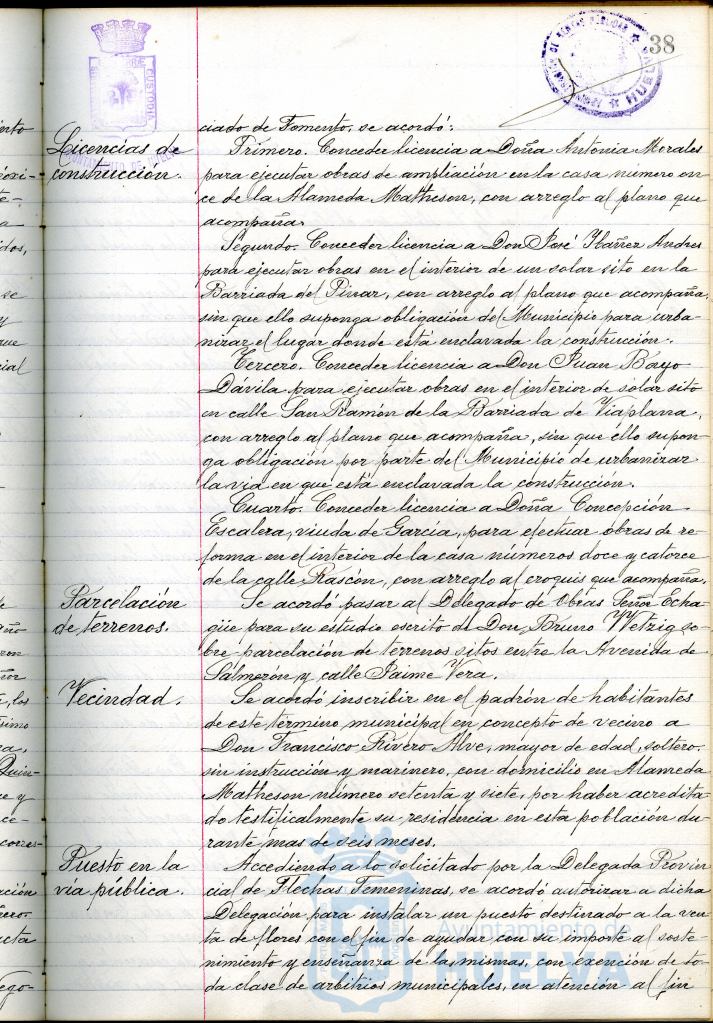 38
ciado de Fomento, se acordó:
Licencias de
construcción.
Primero. Conceder licencia a Doña Antonia Morales
para ejecutar obras de ampliación en la casa número on
ce de la Alameda Matheson, con arreglo al plano que
acompaña.
Segundo. Conceder licencia a Don José Ibañez Andres
para ejecutar obras en el interior de un solar sito en la
Barriada del Pinar, con arreglo al plano que acompaña,
sin que ello suponga obligación del Municipio para urba-
nizar el lugar donde está enclavada la construcción.
Tercero. Conceder licencia a Don Juan Bayo
Dávila para ejecutar obras en el interior de solar sito
en calle San Ramón de la Barriada de Viaplana,
con arreglo al plano que acompaña, sin que ello supon-
ga obligación por parte del Municipio de urbanizar
la via en que está enclavada la construcción.
Cuarto. Conceder licencia a Doña Concepción
Escalera, viuda de García, para efectuar obras de re-
forma en el interior de la casa números doce y catorce
de la calle Rascón, con arreglo al croquis que acompaña.
Parcelación
de terrenos.
Se acordó pasar al Delegado de Obras Señor Echa-
güe para su estudio escrito de Don Bruno Wetzig so-
bre parcelación de terrenos sitos entre la Avenida de
Salmerón y calle Jaime Vera.
Vecindad.
Se acordó inscribir en el padrón de habitantes
de este termino municipal en concepto de vecino a
Don Francisco Rivero Alve, mayor de edad, soltero,
sin instrucción y marinero, con domicilio en Alameda
Matheson número setenta y siete, por haber acredita-
do testificalmente su residencia en esta población du-
rante mas de seis meses.
Puesto en la
via pública.
Accediendo a lo solicitado por la Delegada Provin
cial de Flechas Femeninas, se acordó autorizar a dicha
Delegación para instalar un puesto destinado a la ven
ta de flores con el fin de ayudar con su importe al soste-
nimiento y enseñanza de las mismas, con exención de to-
da clase de arbitrios municipales, en atención al fin
Ayuntamiento de
HUELVA